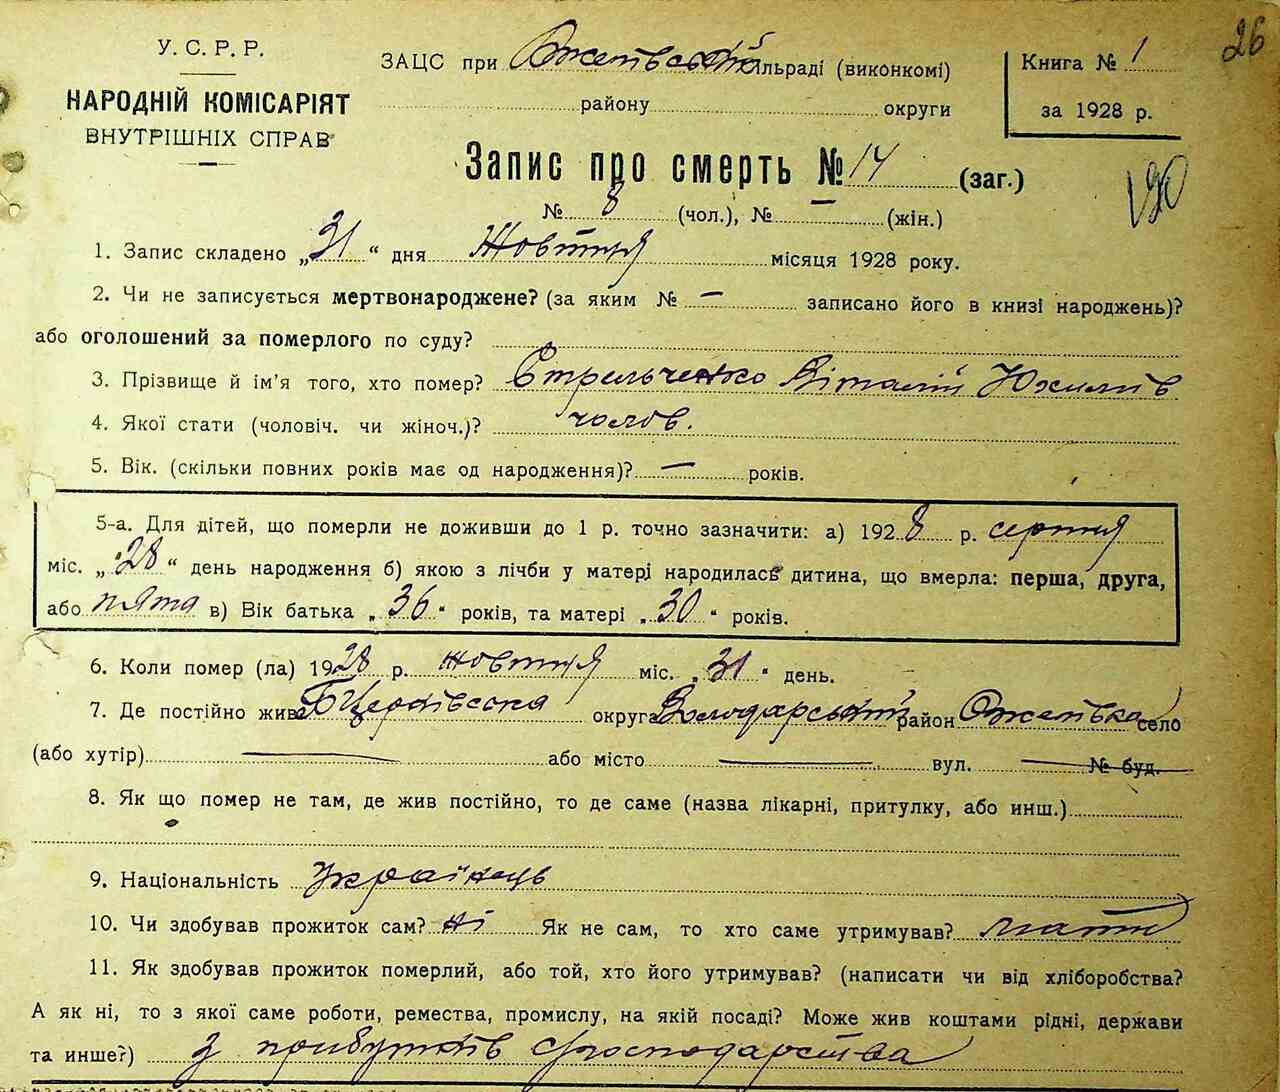 26
У. С. Р. Р.
НАРОДНІЙ КОМІСАРІЯТ
ВНУТРІШНІХ СПРАВ
ЗАЦС при Ожегівській сільраді (виконкомі)
району округи
Книга № 1
за 1928 р.
Запис про смерть № 14 (заг.)
190
№ 8 (чол.), № — (жін.)
1. Запис складено „31“ дня Жовтня місяця 1928 року.
2. Чи не записується мертвонароджене? (за яким № — записано його в книзі народжень)?
або оголошений за померлого по суду?
3. Прізвище й ім'я того, хто помер? Стрельченко Віталій Юхимів
4. Якої стати (чоловіч. чи жіноч.)? чолов.
5. Вік. (скільки повних років має од народження)? — років.
5-а. Для дітей, що померли не доживши до 1 р. точно зазначити: а) 1928 р. серпня
міс. „28“ день народження б) якою з лічби у матері народилась дитина, що вмерла: перша, друга,
або пята в) Вік батька „36“ років, та матері „30“ років.
6. Коли помер (ла) 1928 р. жовтня міс. „31“ день.
7. Де постійно жив Б Церківська округа Володарський район Ожегівка село
(або хутір) — або місто — вул. — № буд.
8. Як що помер не там, де жив постійно, то де саме (назва лікарні, притулку, або инш.)
9. Національність Українець
10. Чи здобував прожиток сам? ні Як не сам, то хто саме утримував? мати
11. Як здобував прожиток померлий, або той, хто його утримував? (написати чи від хліборобства?
А як ні, то з якої саме роботи, ремества, промислу, на якій посаді? Може жив коштами рідні, держави
та инше?) з прибутків господарства